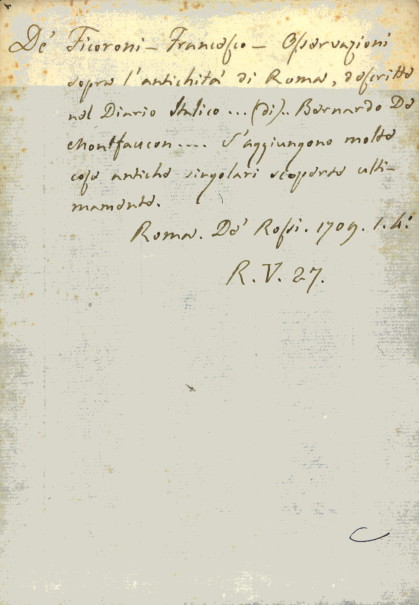 De' Ficoroni - Francesco - Osservazioni
sopra l'antichità di Roma, descritte
nel Diario Italico ... (di).. Bernardo De
Montfaucon .... S'aggiungono molte
cose antiche singolari scoperte ulti-
mamente.
Roma. De' Rossi. 1709. 1. 4:
R. V. 27.